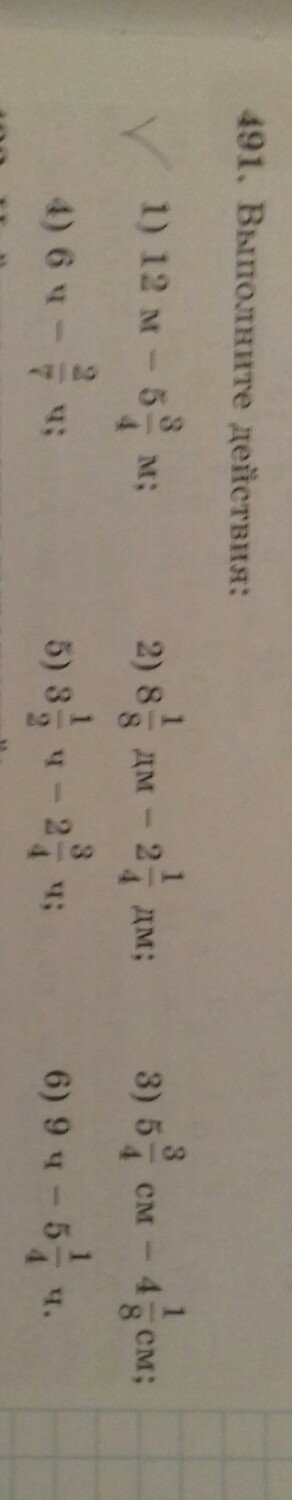 491. Выполните действия:
1) 12 м − 5 3/4 м; 2) 8 1/8 дм − 2 1/4 дм; 3) 5 3/4 см − 4 1/8 см;
4) 6 ч − 2/7 ч; 5) 3 1/2 ч − 2 3/4 ч; 6) 9 ч − 5 1/4 ч.